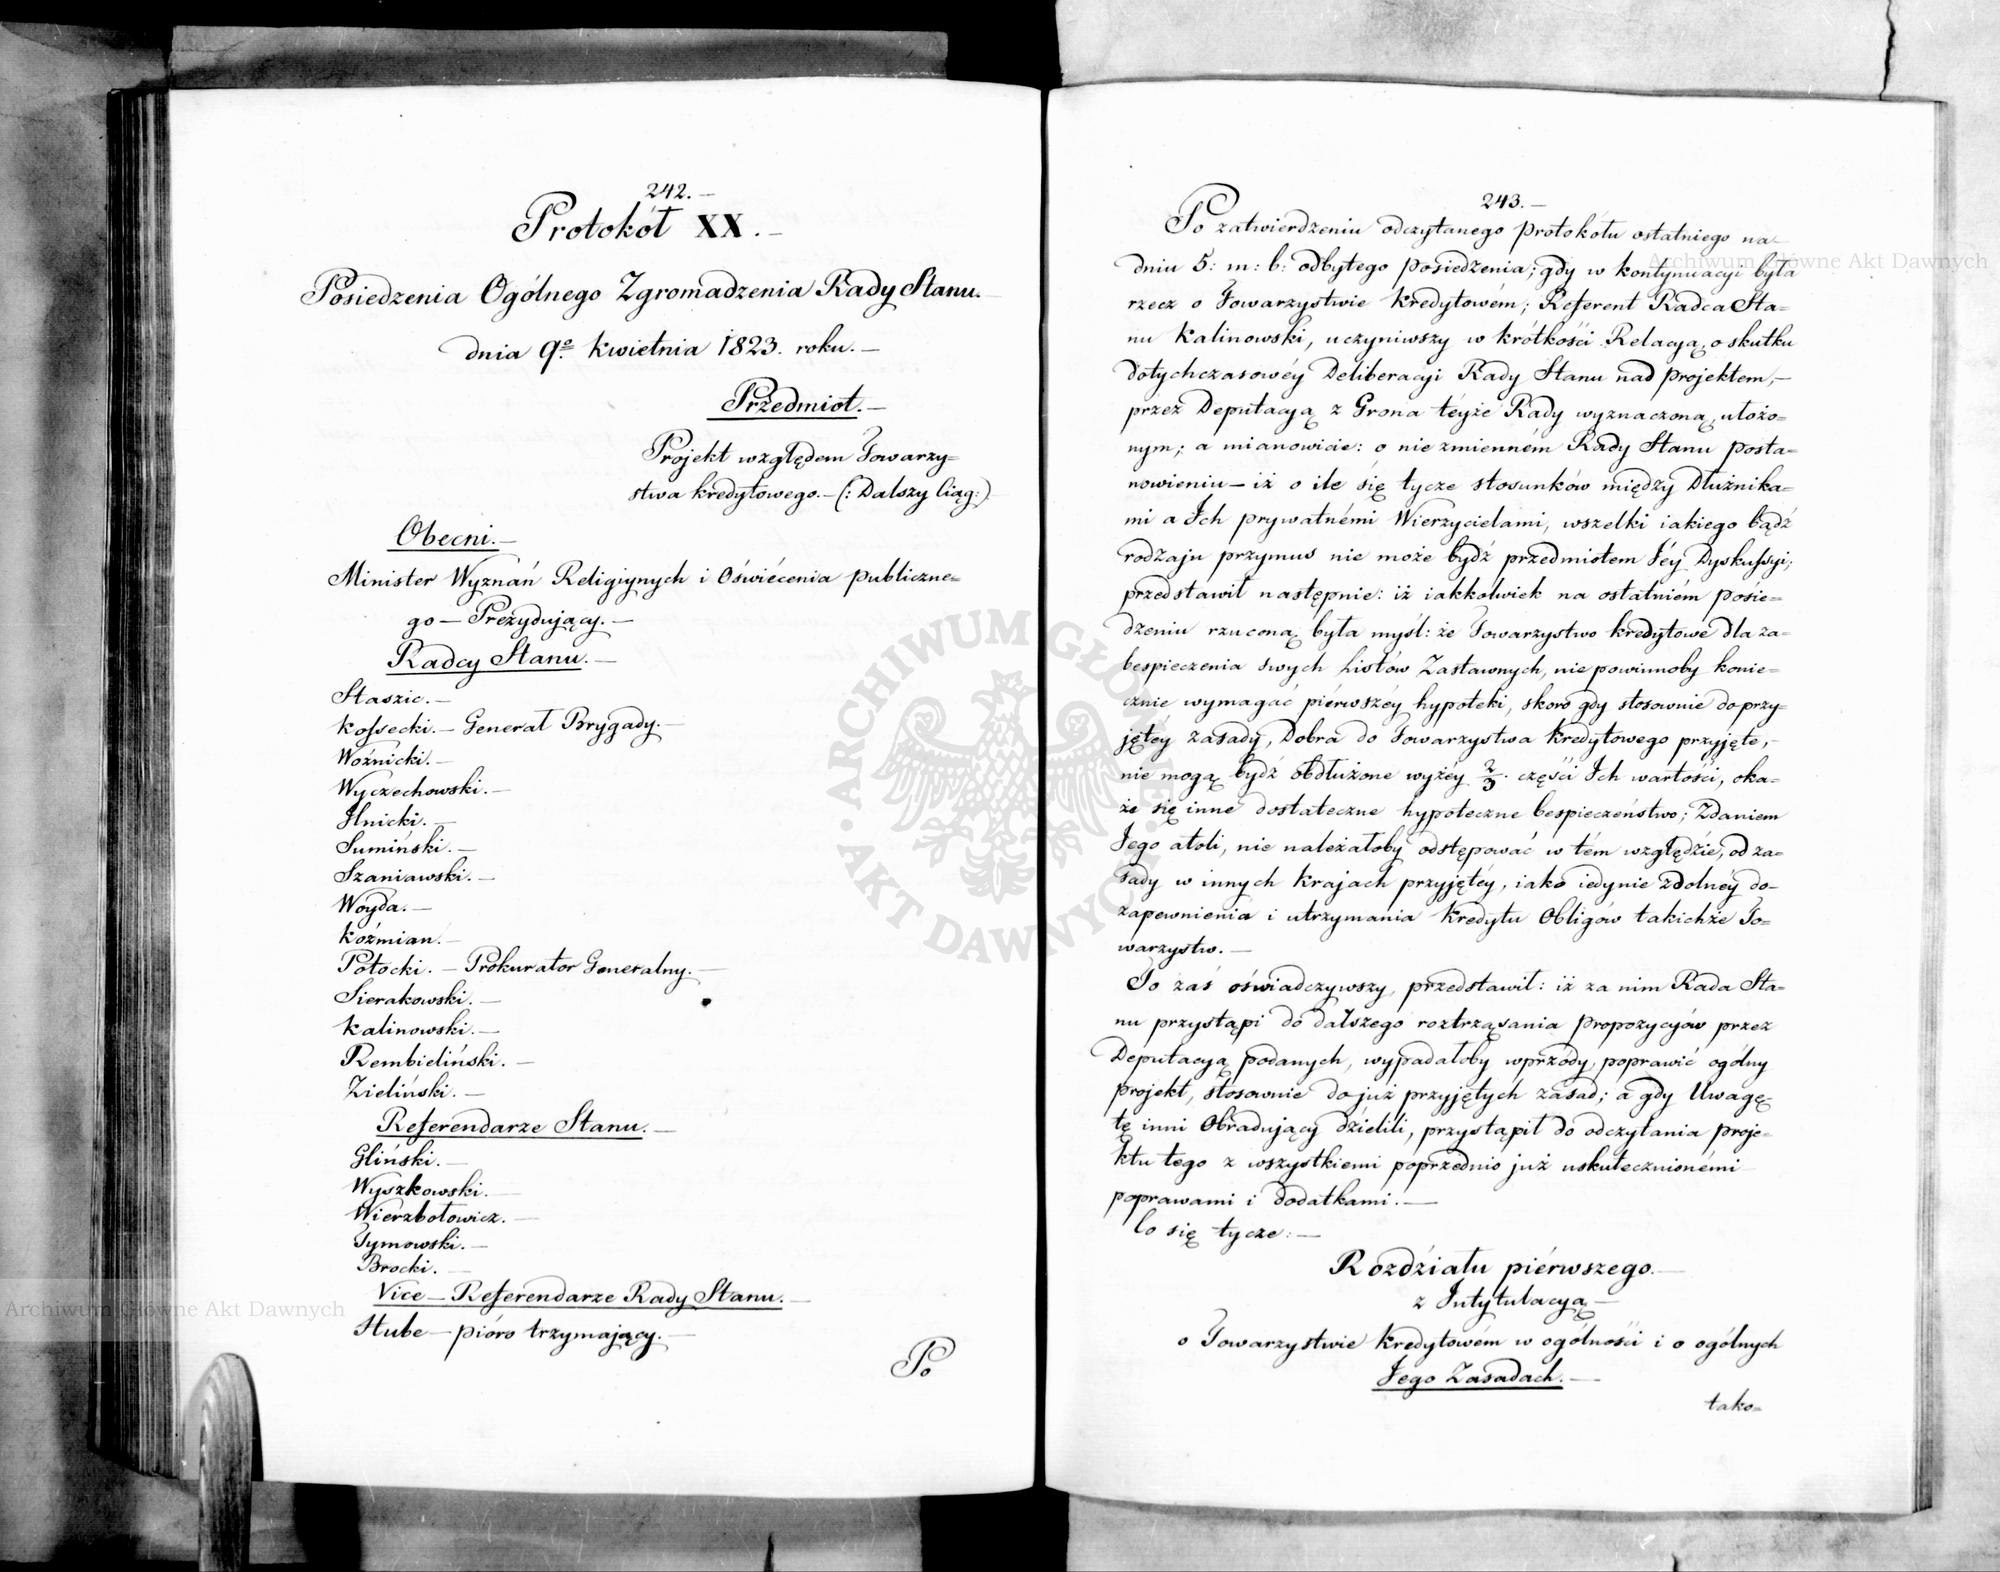 242.—
Protokół XX.—
Posiedzenia Ogólnego Zgromadzenia Rady Stanu.—
dnia 9º kwietnia 1823. roku.—
Przedmiot.—
Projekt względem Towarzy=
stwa kredytowego.—(: Dalszy Ciąg:)
Obecni.—
Minister Wyznań Religiynych i Oświécenia publiczne=
go — Prezydujący.—
Radcy Stanu.—
Staszic.—
Kossecki.— Generał Brygady.—
Woźnicki.—
Wyczechowski.—
Ilnicki.—
Sumiński.—
Szaniawski.—
Woyda.—
Koźmian.—
Potocki.— Prokurator Generalny.—
Sierakowski.—
Kalinowski.—
Rembieliński.—
Zieliński.—
Referendarze Stanu.—
Gliński.—
Wyszkowski.—
Wierzbołowicz.—
Tymowski.—
Brocki.—
Vice — Referendarze Rady Stanu.—
Hube — pióro trzymający.—
Po
243.—
Po zatwierdzeniu odczytanego protokółu ostatniego na
dniu 5: m: b: odbytego posiedzenia; gdy w kontynuacyi była
rzecz o Towarzystwie kredytowém; Referent Radca Sta=
nu Kalinowski, uczyniwszy w krótkości Relacyą, o skutku
dotychczasowéy Deliberacyi Rady Stanu nad projektem,—
przez Deputacyą z Grona téyże Rady wyznaczoną, ułożo=
nym; a mianowicie: o niezmienném Rady Stanu posta=
nowieniu — iż o ile się tycze stosunków między Dłużnika=
mi a Ich prywatnémi Wierzycielami, wszelki iakiego bądź
rodzaju przymus nie może bydź przedmiotem Jéy Dyskussyi;
przedstawił następnie: iż iakkolwiek na ostatniém posie=
dzeniu rzuconą była myśl: że Towarzystwo kredytowe dla za=
bespieczenia swych Listów Zastawnych, nie powinnoby konie=
cznie wymagać piérwszéy hypoteki, skoro gdy stosownie do przy=
jętéy zasady, Dobra do Towarzystwa kredytowego przyjęte,—
nie mogą bydź obdłużone wyżéy 2/3. części Ich wartości, oka=
że się inne dostateczne hypoteczne bespieczeństwo; Zdaniem
Jego atoli, nie należałoby odstępować w tém względzie, od za=
sady w innych krajach przyjętéy, iako iedynie zdolney do=
zapewnienia i utrzymania kredytu Obligów takichże To=
warzystw.—
To zaś oświadczywszy, przedstawił: iż za nim Rada Sta=
nu przystąpi do dalszego roztrząsania propozycyów przez
Deputacyą podanych, wypadałoby wprzódy, poprawić ogólny
projekt, stosownie do już przyjętych zasad; a gdy Uwagę
tę inni Obradujący dzielili, przystąpił do odczytania proje=
ktu tego z wszystkiemi poprzednio już uskutecznionémi
poprawami i dodatkami.—
Co się tycze:—
Rozdziału piérwszego.—
z Intytulacyą—
o Towarzystwie kredytowem w ogólności i o ogólnych
Jego Zasadach.—
tako=
Archiwum Główne Akt Dawnych
Archiwum Główne Akt Dawnych
ARCHIWUM GŁÓWNE AKT DAWNYCH